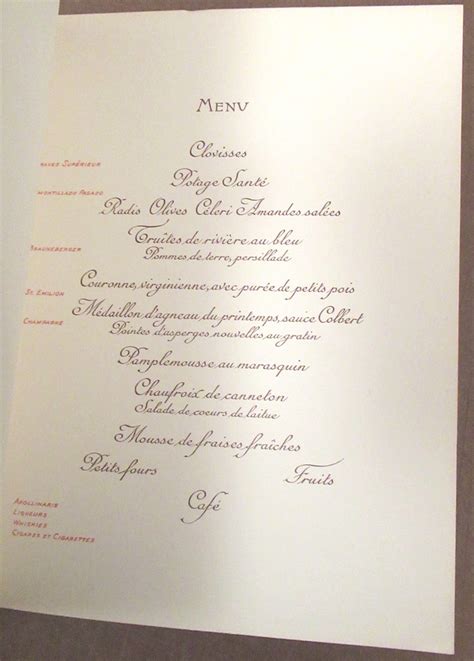 MENU
Clovisses
SUPÉRIEUR
Potage Santé
Radis Olives Céleri Amandes salées
Truites de rivière au bleu
BRAUNEBERGER
Pommes de terre, persillade
Couronne, virginienne, avec purée de petits pois
ST. EMILION
Médaillon d'agneau du printemps, sauce Colbert
CHAMPAGNE
Pointes d'asperges nouvelles, au gratin
Pamplemousse au marasquin
Chaufroix de canneton
Salade de coeurs de laitue
Mousse de fraises fraîches
Petits fours Fruits
Café
APOLLINARIS
LIQUEURS
WHISKIES
CIGARES ET CIGARETTES